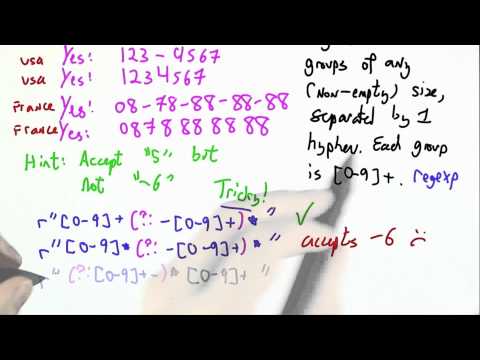 usa Yes! 123-4567
usa Yes! 1234567
France Yes! 08-78-88-88-88
France Yes: 0878 88 88 88
Hint: Accept "5" but
not "-6"
Tricky!
r"[0-9]+(?:-[0-9]+)*" ✓
r"[0-9]*(?:-[0-9]+)*" accepts -6 ☹
r"(?:[0-9]+-)*[0-9]+"
groups of any
(non-empty) size,
separated by 1
hyphen. Each group
is [0-9]+. regexp